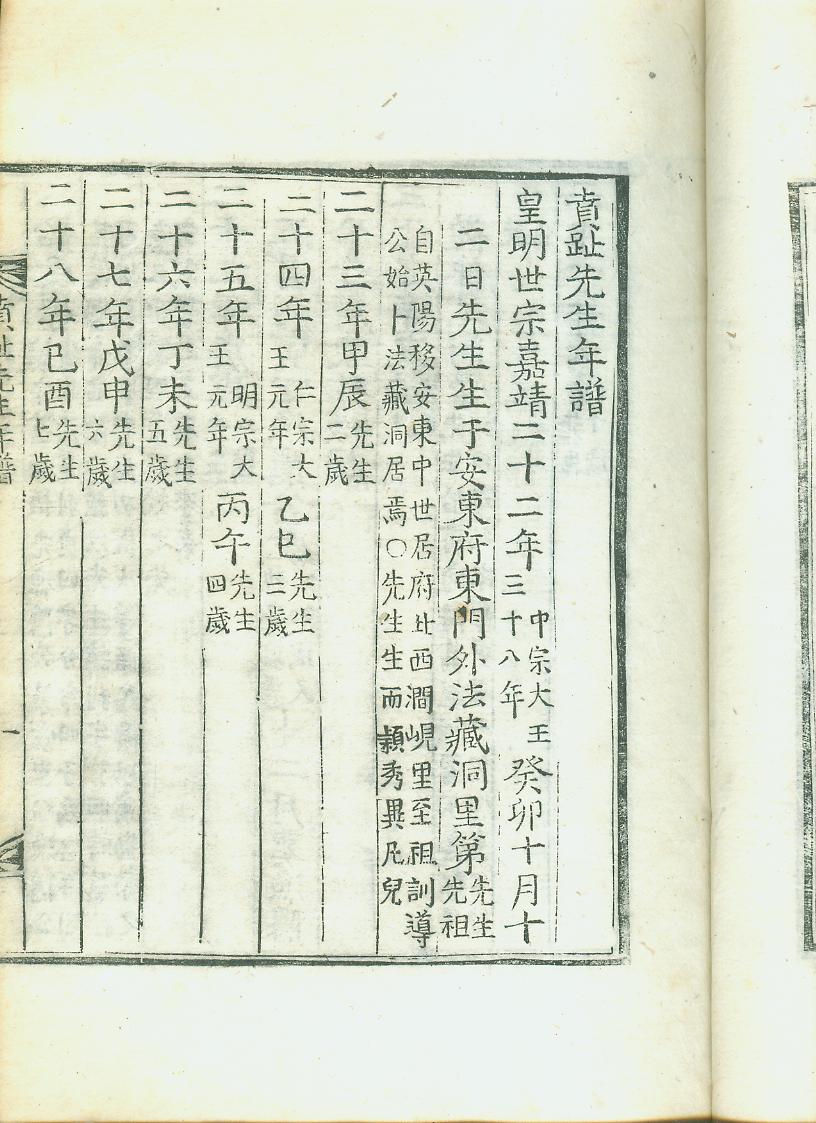 賁趾先生年譜
皇明世宗嘉靖二十二年中宗大王三十八年癸卯十月十
二日先生生于安東府東門外法藏洞里第先生先祖
自英陽移安東中世居府北西澗峴里至祖訓導
公始卜法藏洞居焉○先生生而穎秀異凡兒
二十三年甲辰先生二歲
二十四年仁宗大王元年乙巳先生三歲
二十五年明宗大王元年丙午先生四歲
二十六年丁未先生五歲
二十七年戊申先生六歲
二十八年己酉先生七歲
賁趾先生年譜
一